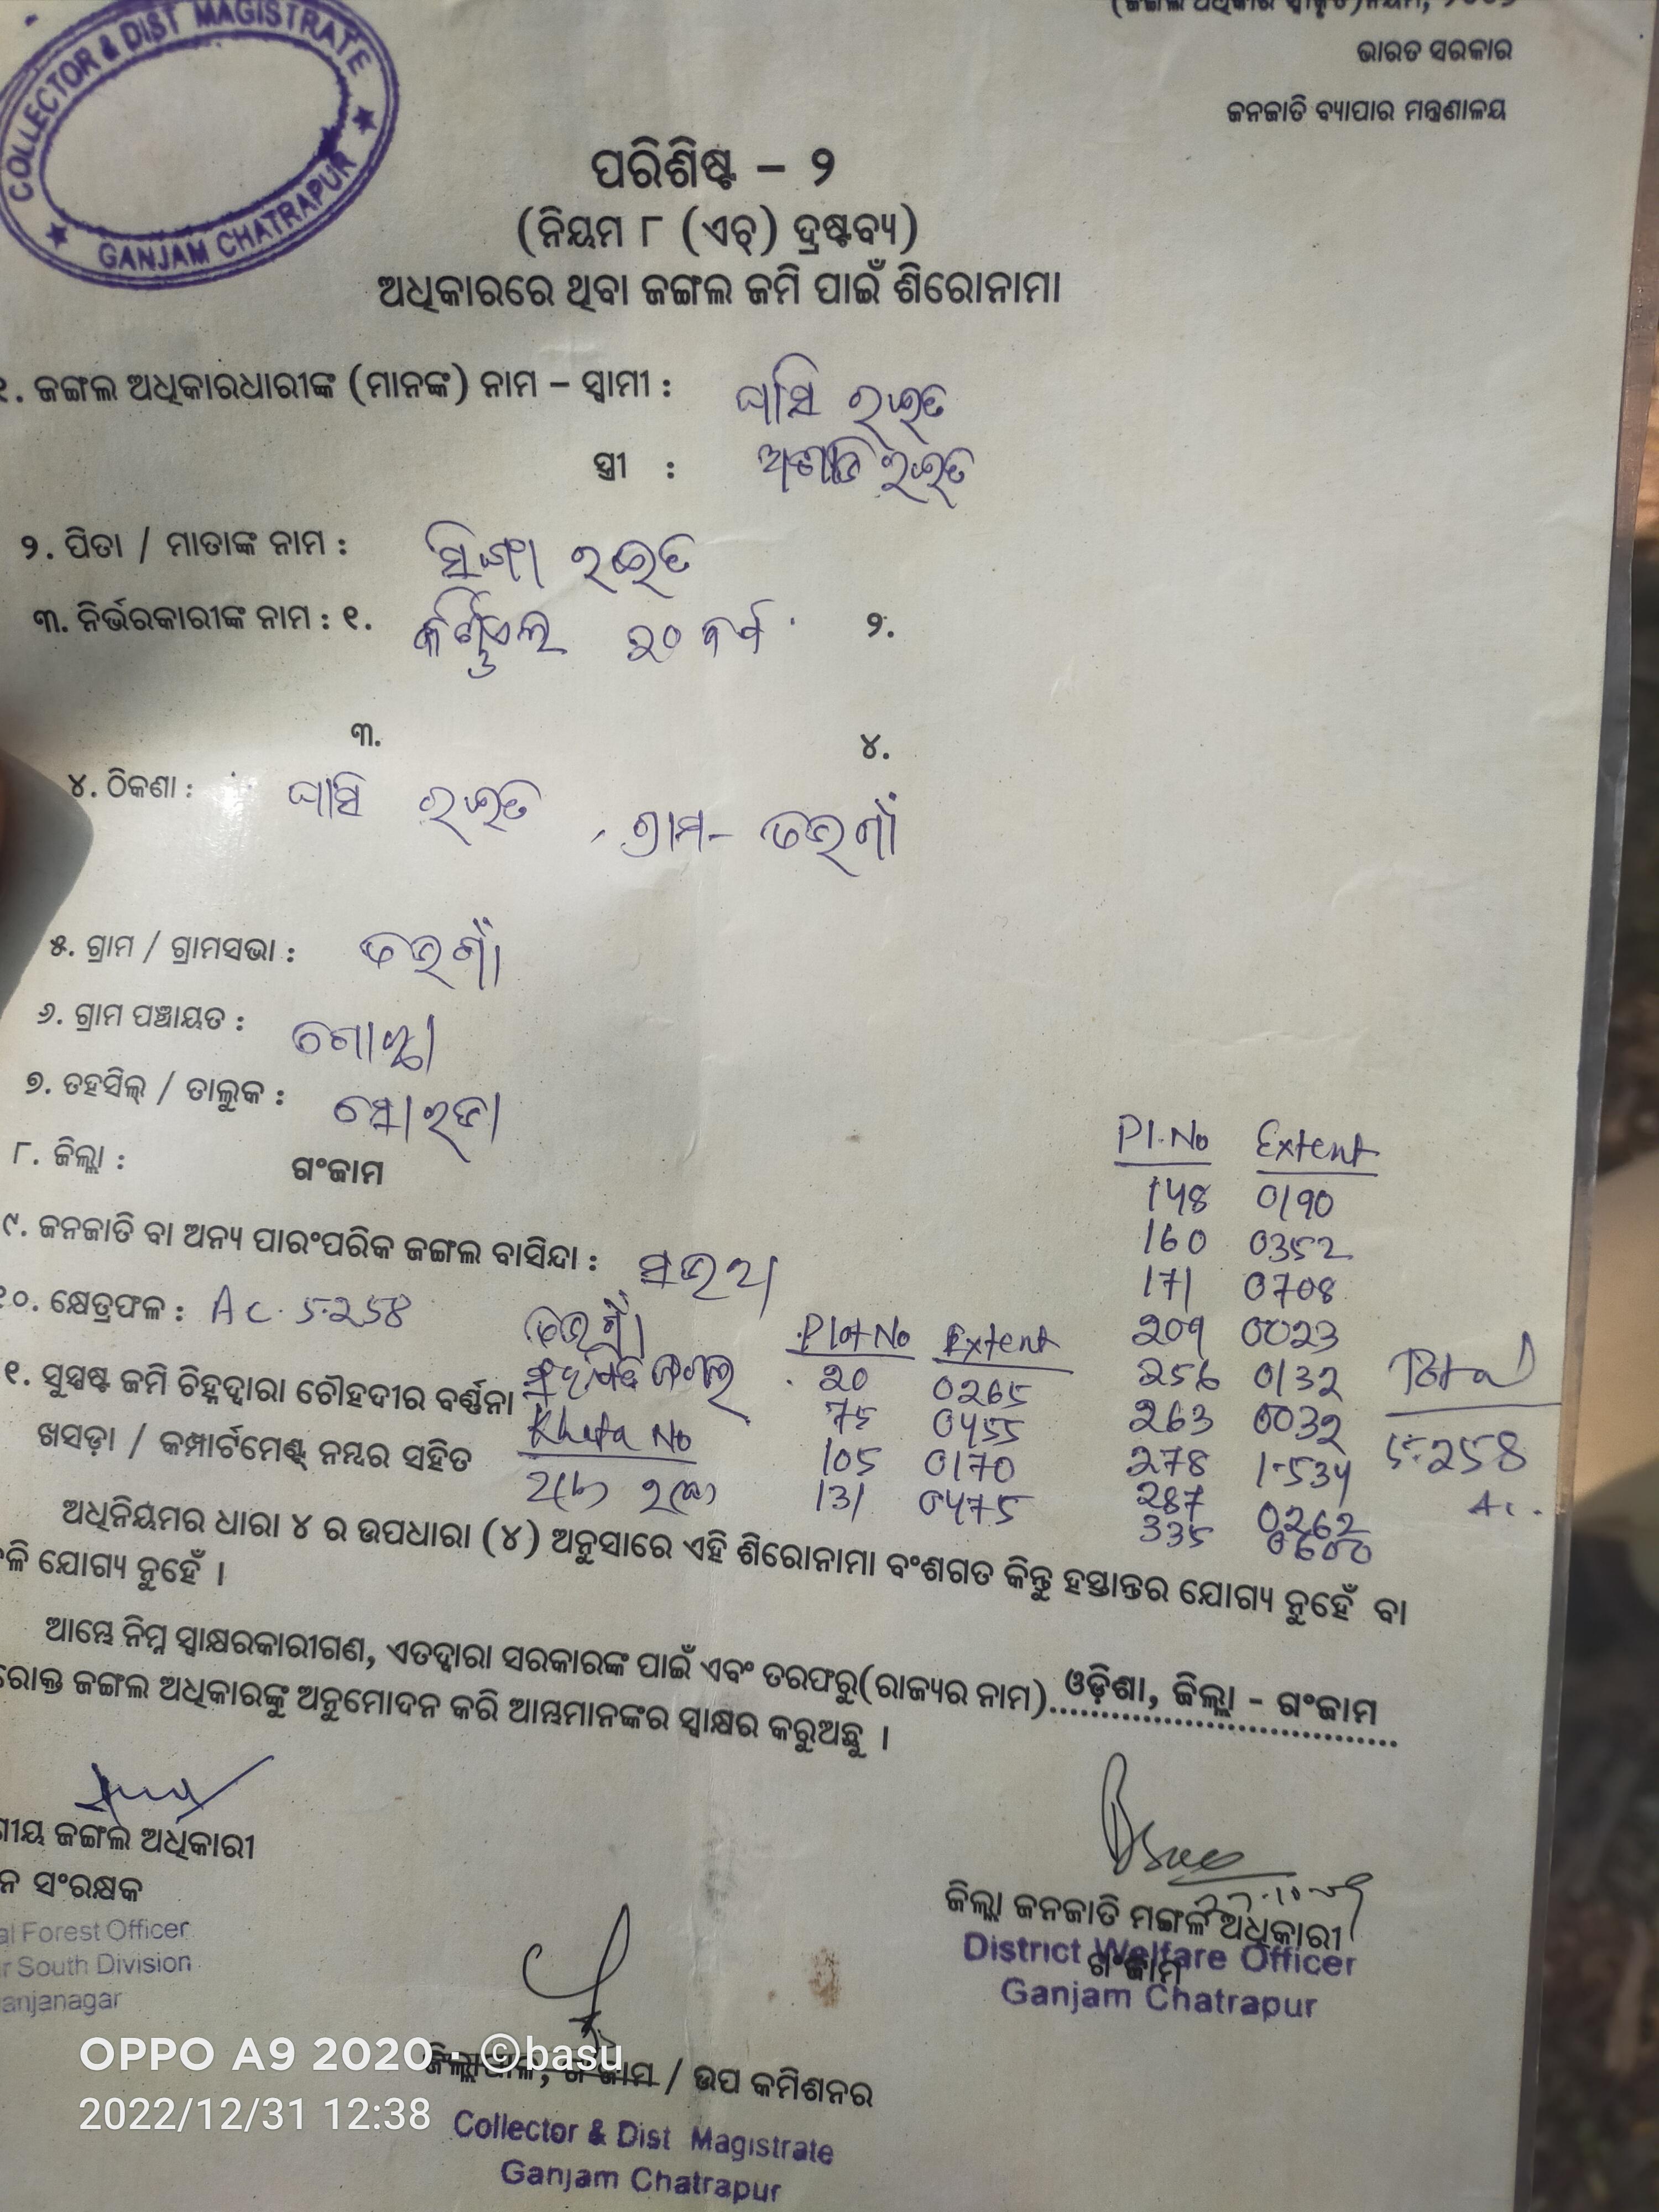 COLLECTOR & DIST MAGISTRATE
GANJAM CHATRAPUR
ଭାରତ ସରକାର
ଜନଜାତି ବ୍ୟାପାର ମନ୍ତ୍ରଣାଳୟ
ପରିଶିଷ୍ଟ – ୨
(ନିୟମ ୮ (ଏଚ୍) ଦ୍ରଷ୍ଟବ୍ୟ)
ଅଧିକାରରେ ଥିବା ଜଙ୍ଗଲ ଜମି ପାଇଁ ଶିରୋନାମା
୧. ଜଙ୍ଗଲ ଅଧିକାରଧାରୀଙ୍କ (ମାନଙ୍କ) ନାମ – ସ୍ୱାମୀ : ଘାସି ରଇତ
ସ୍ତ୍ରୀ : ରଇତ
୨. ପିତା / ମାତାଙ୍କ ନାମ : ରଇତ
୩. ନିର୍ଭରକାରୀଙ୍କ ନାମ : ୧. ୨୦ ବର୍ଷ ୨.
୩. ୪.
୪. ଠିକଣା : ଘାସି ରଇତ , ଗ୍ରାମ-
୫. ଗ୍ରାମ / ଗ୍ରାମସଭା :
୬. ଗ୍ରାମ ପଞ୍ଚାୟତ :
୭. ତହସିଲ୍ / ତାଲୁକ : ସୋରଡା
୮. ଜିଲ୍ଲା : ଗଂଜାମ
Pl.No Extent
148 0190
160 0352
171 0708
209 0023
256 0132
263 0032
278 1.534
287 0262
335
୯. ଜନଜାତି ବା ଅନ୍ୟ ପାରଂପରିକ ଜଙ୍ଗଲ ବାସିନ୍ଦା : ସଉରା
୧୦. କ୍ଷେତ୍ରଫଳ : Ac. 5.258
୧୧. ସୁସ୍ପଷ୍ଟ ଜମି ଚିହ୍ନଦ୍ୱାରା ଚୌହଦୀର ବର୍ଣ୍ଣନା
ଖସଡ଼ା / କମ୍ପାର୍ଟମେଣ୍ଟ୍ ନମ୍ବର ସହିତ
ଜଙ୍ଗଲ
Khata No
Plot No Extent
20 0265
75 0455
105 0170
131 0475
Total
5.258
Ac.
ଅଧିନିୟମର ଧାରା ୪ ର ଉପଧାରା (୪) ଅନୁସାରେ ଏହି ଶିରୋନାମା ବଂଶଗତ କିନ୍ତୁ ହସ୍ତାନ୍ତର ଯୋଗ୍ୟ ନୁହେଁ ବା
ଯୋଗ୍ୟ ନୁହେଁ ।
ଆମ୍ଭେ ନିମ୍ନ ସ୍ୱାକ୍ଷରକାରୀଗଣ, ଏତଦ୍ୱାରା ସରକାରଙ୍କ ପାଇଁ ଏବଂ ତରଫରୁ(ରାଜ୍ୟର ନାମ)....ଓଡ଼ିଶା, ଜିଲ୍ଲା - ଗଂଜାମ
ଜଙ୍ଗଲ ଅଧିକାରଙ୍କୁ ଅନୁମୋଦନ କରି ଆମ୍ଭମାନଙ୍କର ସ୍ୱାକ୍ଷର କରୁଅଛୁ ।
ଜଙ୍ଗଲ ଅଧିକାରୀ
ସଂରକ୍ଷକ
Forest Officer
South Division
ଜିଲ୍ଲା ଜନଜାତି ମଙ୍ଗଳ ଅଧିକାରୀ
ଗଂଜାମ
District Welfare Officer
Ganjam Chatrapur
ଜିଲ୍ଲାପାଳ, ଗଂଜାମ / ଉପ କମିଶନର
Collector & Dist Magistrate
Ganjam Chatrapur
OPPO A9 2020 · ©basu
2022/12/31 12:38